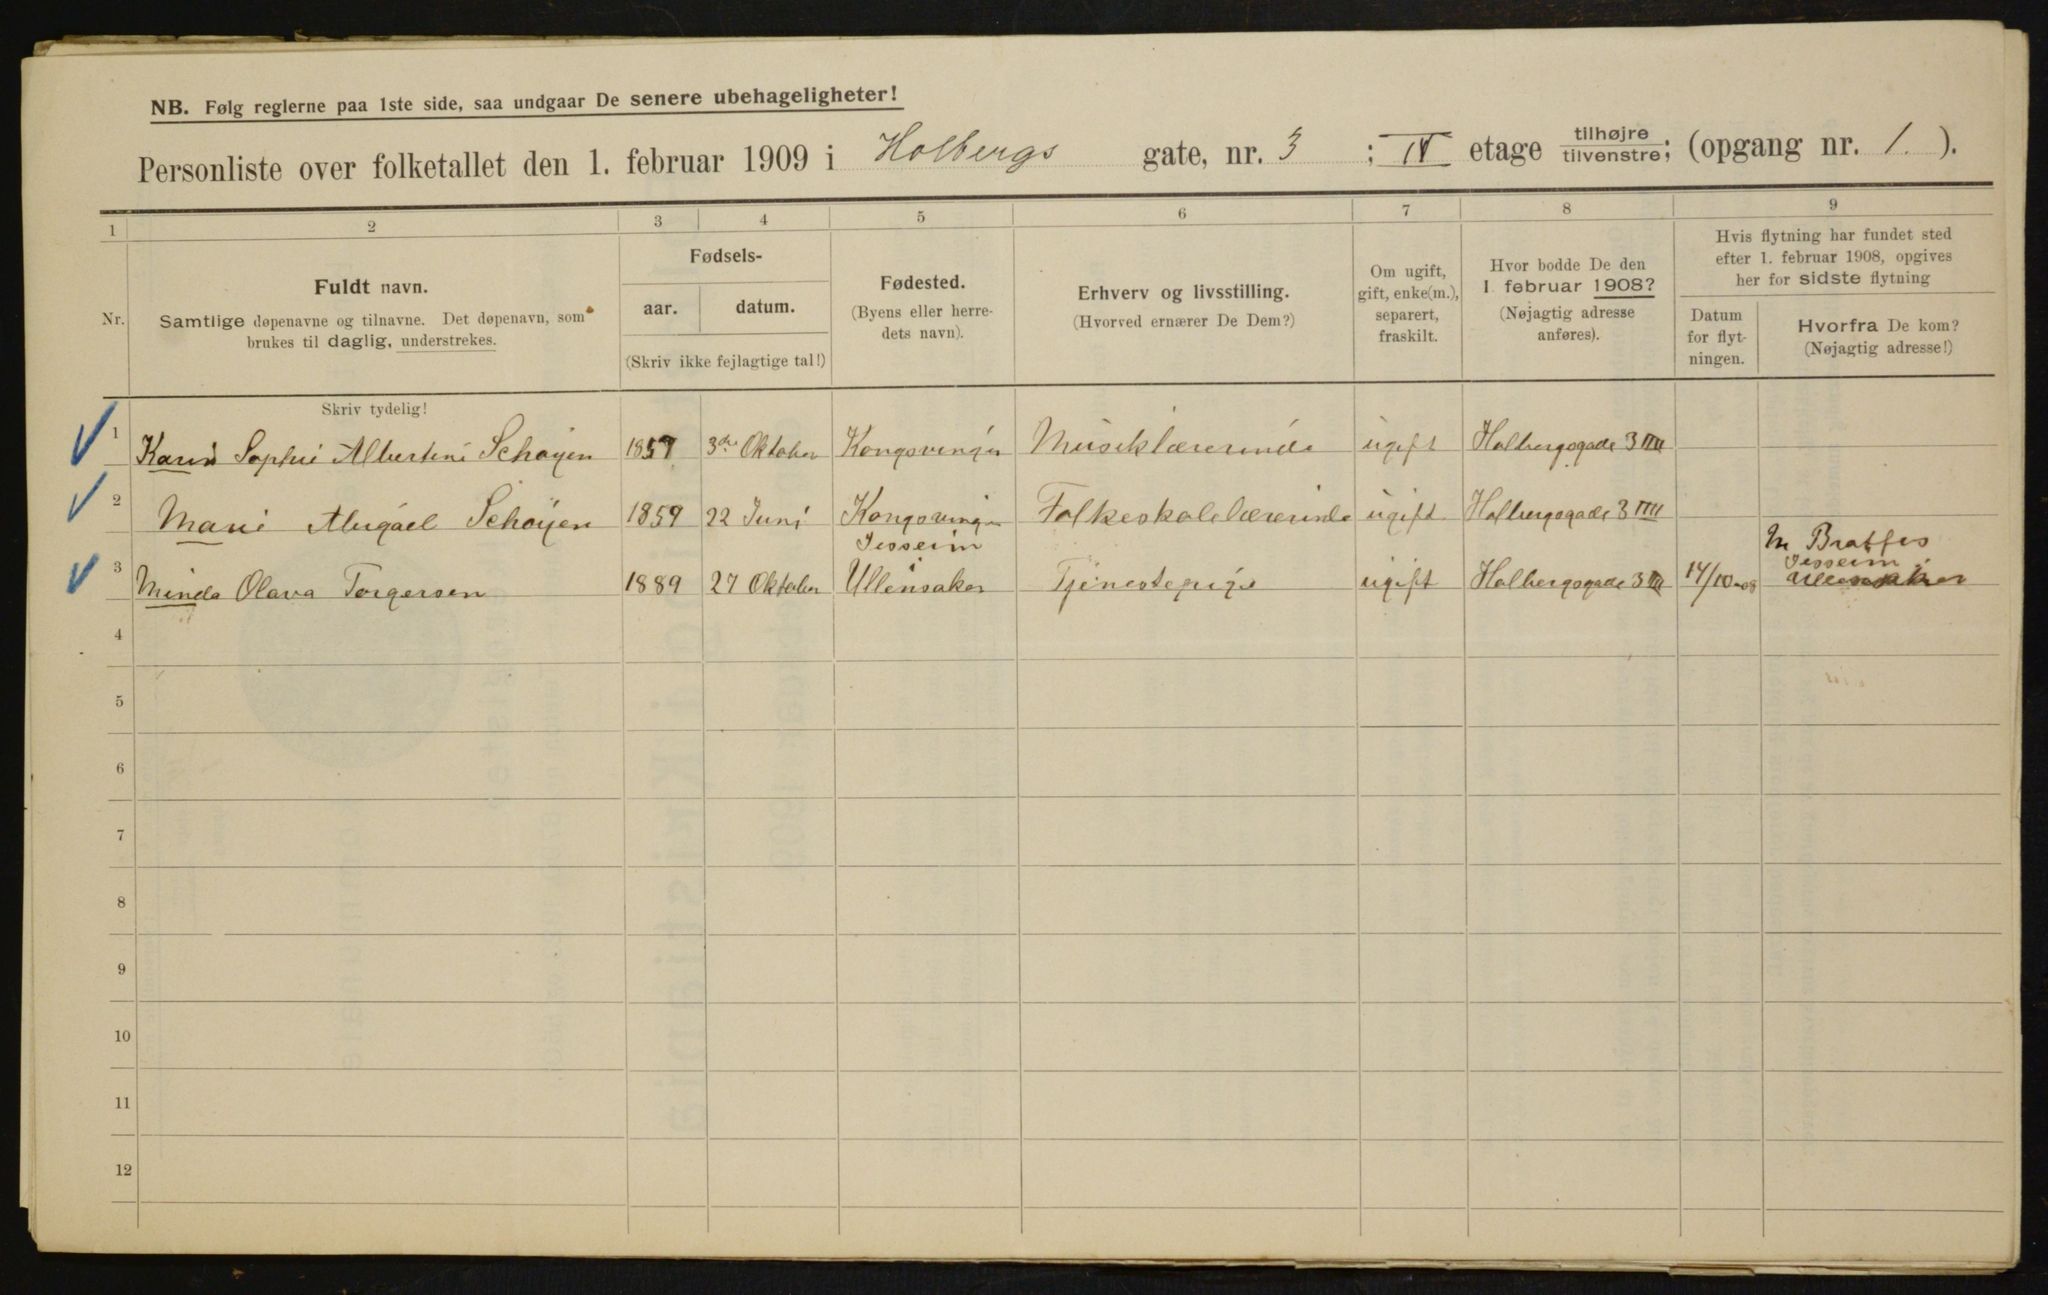 NB. Følg reglerne paa 1ste side, saa undgaar De senere ubehageligheter!
Personliste over folketallet den 1. februar 1909 i Holbergs gate, nr. 3 ; IV etage tilhøjre/tilvenstre; (opgang nr. 1. ).
1 2 3 4 5 6 7 8 9
Nr.
Fuldt navn.
Samtlige døpenavne og tilnavne. Det døpenavn, som
brukes til daglig, understrekes.
Fødsels-
aar. datum.
(Skriv ikke fejlagtige tal!)
Fødested.
(Byens eller herre-
dets navn).
Erhverv og livsstilling.
(Hvorved ernærer De Dem?)
Om ugift,
gift, enke(m.),
separert,
fraskilt.
Hvor bodde De den
1. februar 1908?
(Nøjagtig adresse
anføres).
Hvis flytning har fundet sted
efter 1. februar 1908, opgives
her for sidste flytning
Datum
for flyt-
ningen.
Hvorfra De kom?
(Nøjagtig adresse!)
Skriv tydelig!
1 Karen Sophie Albertine Schøyen 1857 3die Oktober Kongsvinger Musiklærerinde ugift Holbergsgade 3 IIII
2 Marie Abigael Schøyen 1859 22 Juni Kongsvinger Folkeskolelærerinde ugift Holbergsgade 3 IIII
Jesseim M Bratfos
3 Minda Olava Torgersen 1889 27 Oktober Ullensaker Tjenestepige ugift Holbergsgade 3 14/10-08 Jesseim
Ullensaker
4
5
6
7
8
9
10
11
12